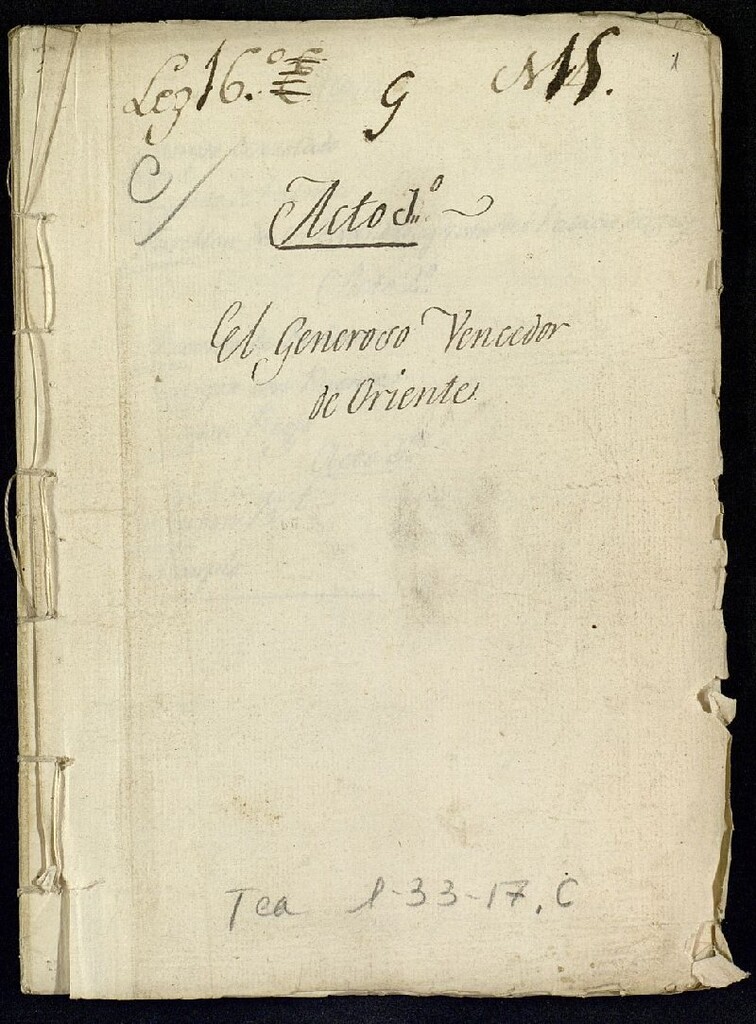 Leg 16.º G N 15. 1
C
Acto 1.º
El Generoso Vencedor
de Oriente
Tea 1-33-17, C